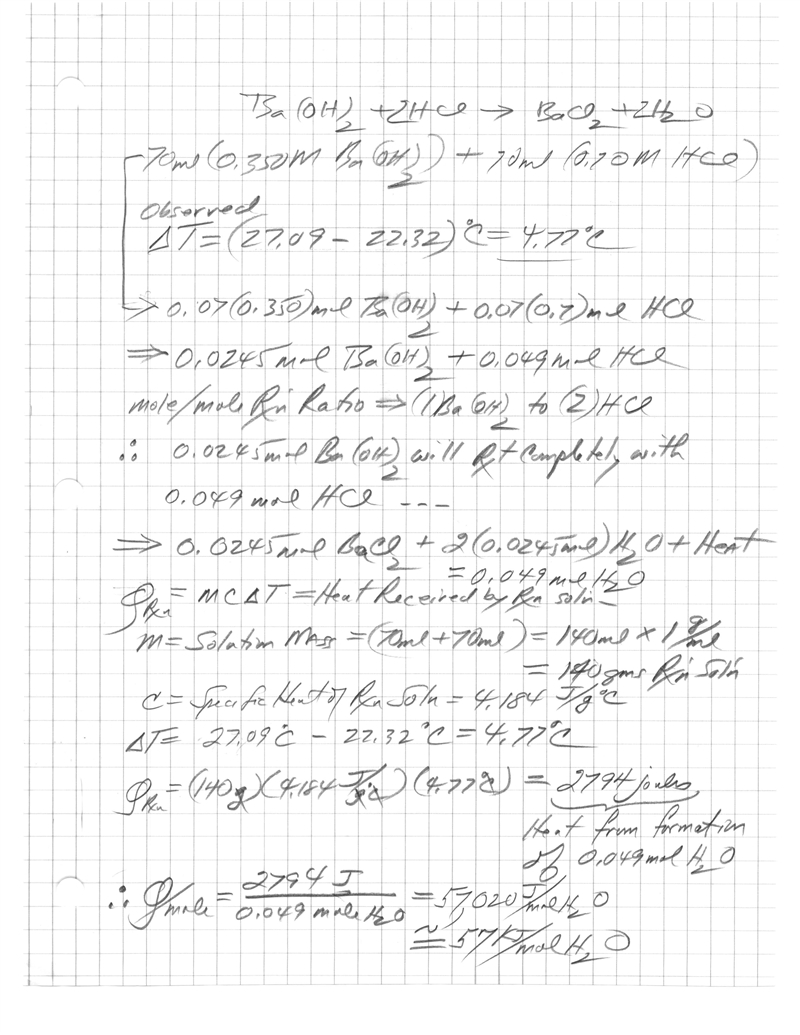 Ba(OH)₂ + 2HCl → BaCl₂ + 2H₂O
70ml (0.350M Ba(OH)₂) + 70ml (0.70M HCl)
Observed
ΔT = (27.09 - 22.32)°C = 4.77°C
⇒ 0.07(0.350)mol Ba(OH)₂ + 0.07(0.7)mol HCl
⇒ 0.0245 mol Ba(OH)₂ + 0.049 mol HCl
mole/mole Rxn Ratio ⇒ (1)Ba(OH)₂ to (2)HCl
∴ 0.0245mol Ba(OH)₂ will Rxt Completely with
0.049 mol HCl ---
⇒ 0.0245mol BaCl₂ + 2(0.0245mol)H₂O + Heat
= 0.049 mol H₂O
q_Rxn = mcΔT = Heat Received by Rxn soln -
m = Solution Mass = (70ml + 70ml) = 140ml × 1 g/ml
= 140gms Rxn Soln
c = Specific Heat of Rxn Soln = 4.184 J/g°C
ΔT = 27.09°C - 22.32°C = 4.77°C
q_Rxn = (140g)(4.184 J/g°C)(4.77°C) = 2794 joules
Heat from formation
of 0.049mol H₂O
∴ q/mole = 2794 J / 0.049 mole H₂O = 57,020 J/mol H₂O
≅ 57 KJ/mol H₂O